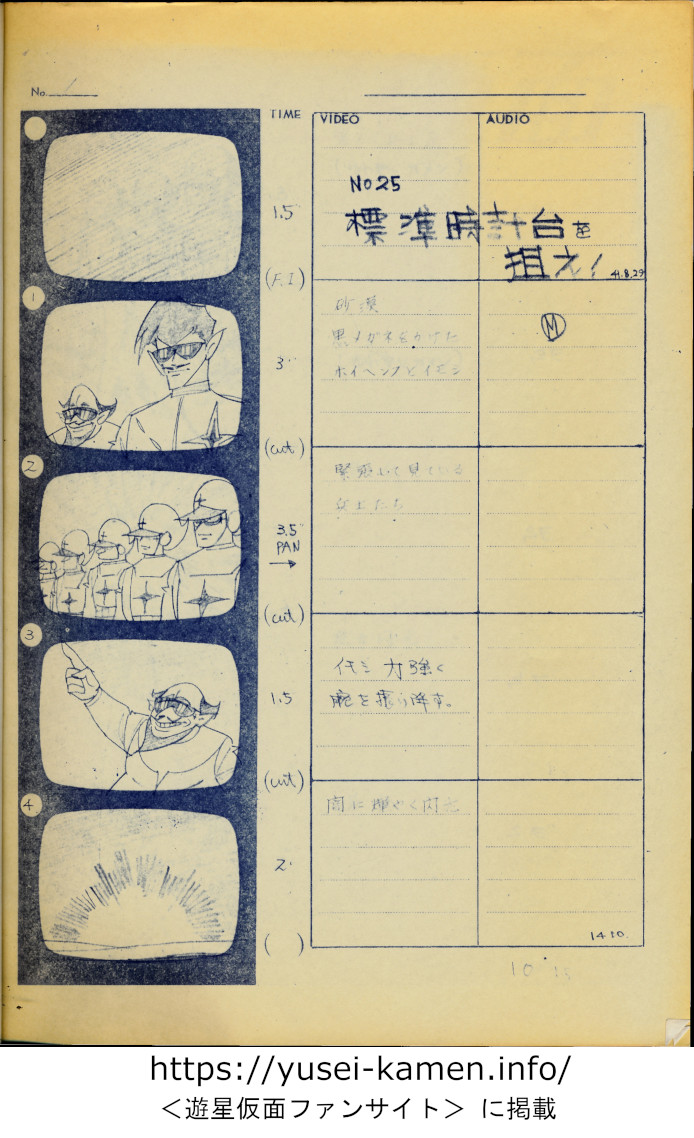 No. 1
TIME
VIDEO
AUDIO
No 25
標準時計台を
狙え!
41.8.29
1.5"
(F.I)
1
砂漠
黒メガネをかけた
ホイヘンスとイモシ
M
3"
(cut)
2
緊張して見ている
兵士たち
3.5"
PAN
(cut)
3
イモシ 力強く
腕を振り降す。
1.5
(cut)
4
闇に輝やく閃光
2"
( )
14.10.
https://yusei-kamen.info/
＜遊星仮面ファンサイト＞ に掲載